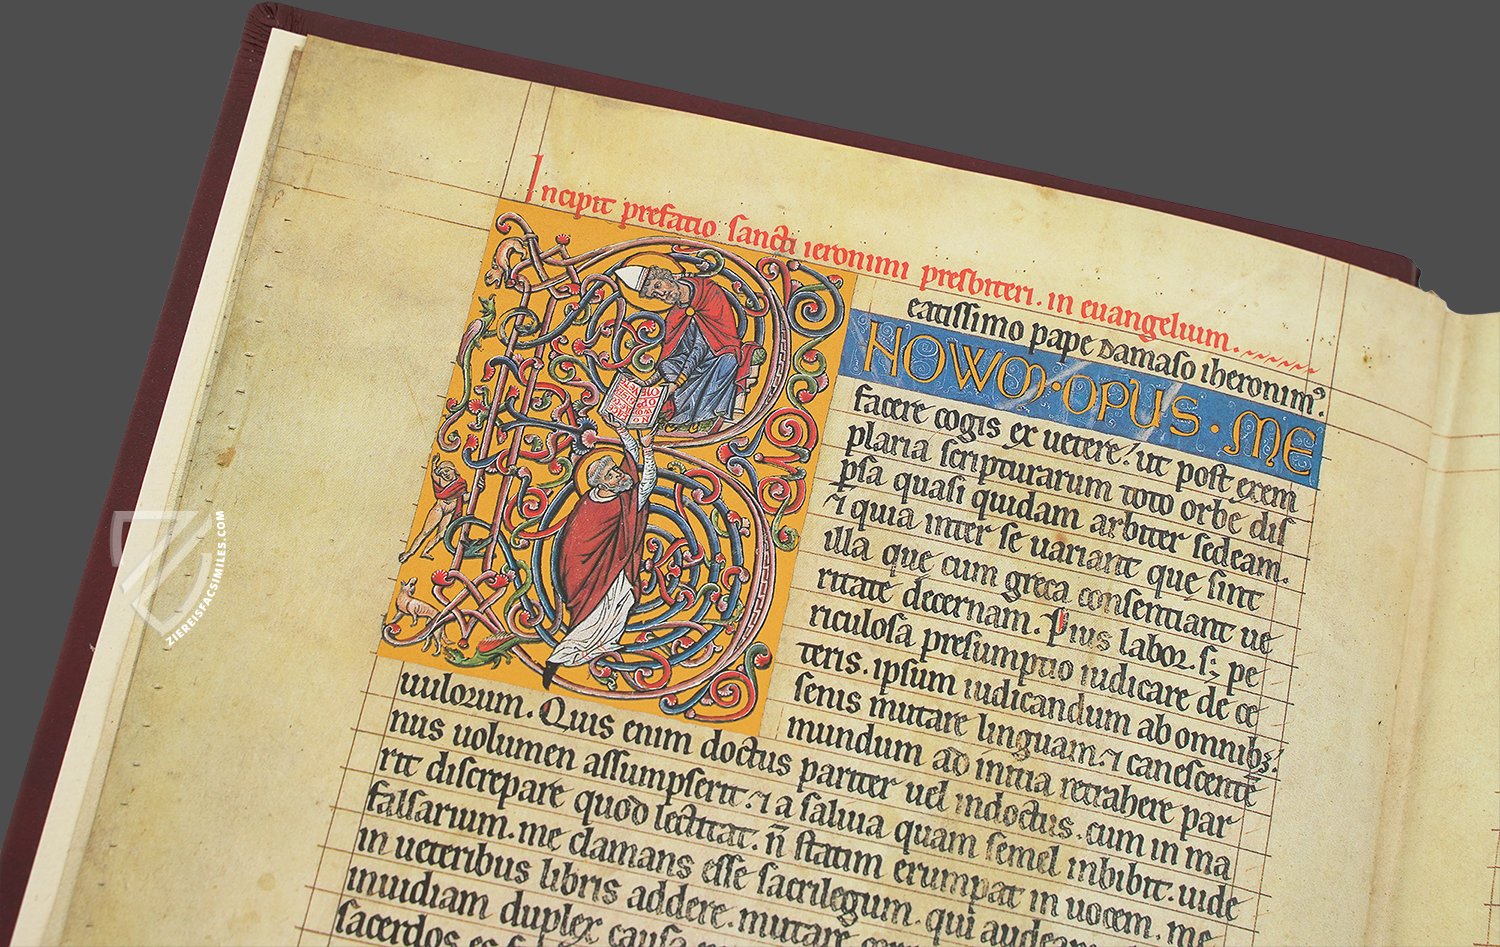 Incipit prefatio sancti ieronimi presbiteri. in euangelium.
eatissimo pape Damaso iheronim⁹.
NOWM·OPUS·ME
facere cogis ex uetere! ut post exem
plaria scripturarum toto orbe dis
psa quasi quidam arbiter sedeam.
⁊ quia inter se uariant que sint
illa que cum greca consentiant ue
ritate decernam. Pius labor. s; pe
riculosa presumptio iudicare de ce
teris. ipsum iudicandum ab omnib;.
senis mutare linguam. ⁊ canescentē
mundum ad initia retrahere par
uulorum. Quis enim doctus pariter uel indoctus. cum in ma
nus uolumen assumpserit. ⁊ a saliua quam semel inbibit. uide
rit discrepare quod lectitat. n̄ statim erumpat in uocem. me
falsarium. me clamans esse sacrilegum. qui audeam
in ueteribus libris addere. mutare
inuidiam duplex causa
sacerdos es
ZIEREISFACSIMILES.COM